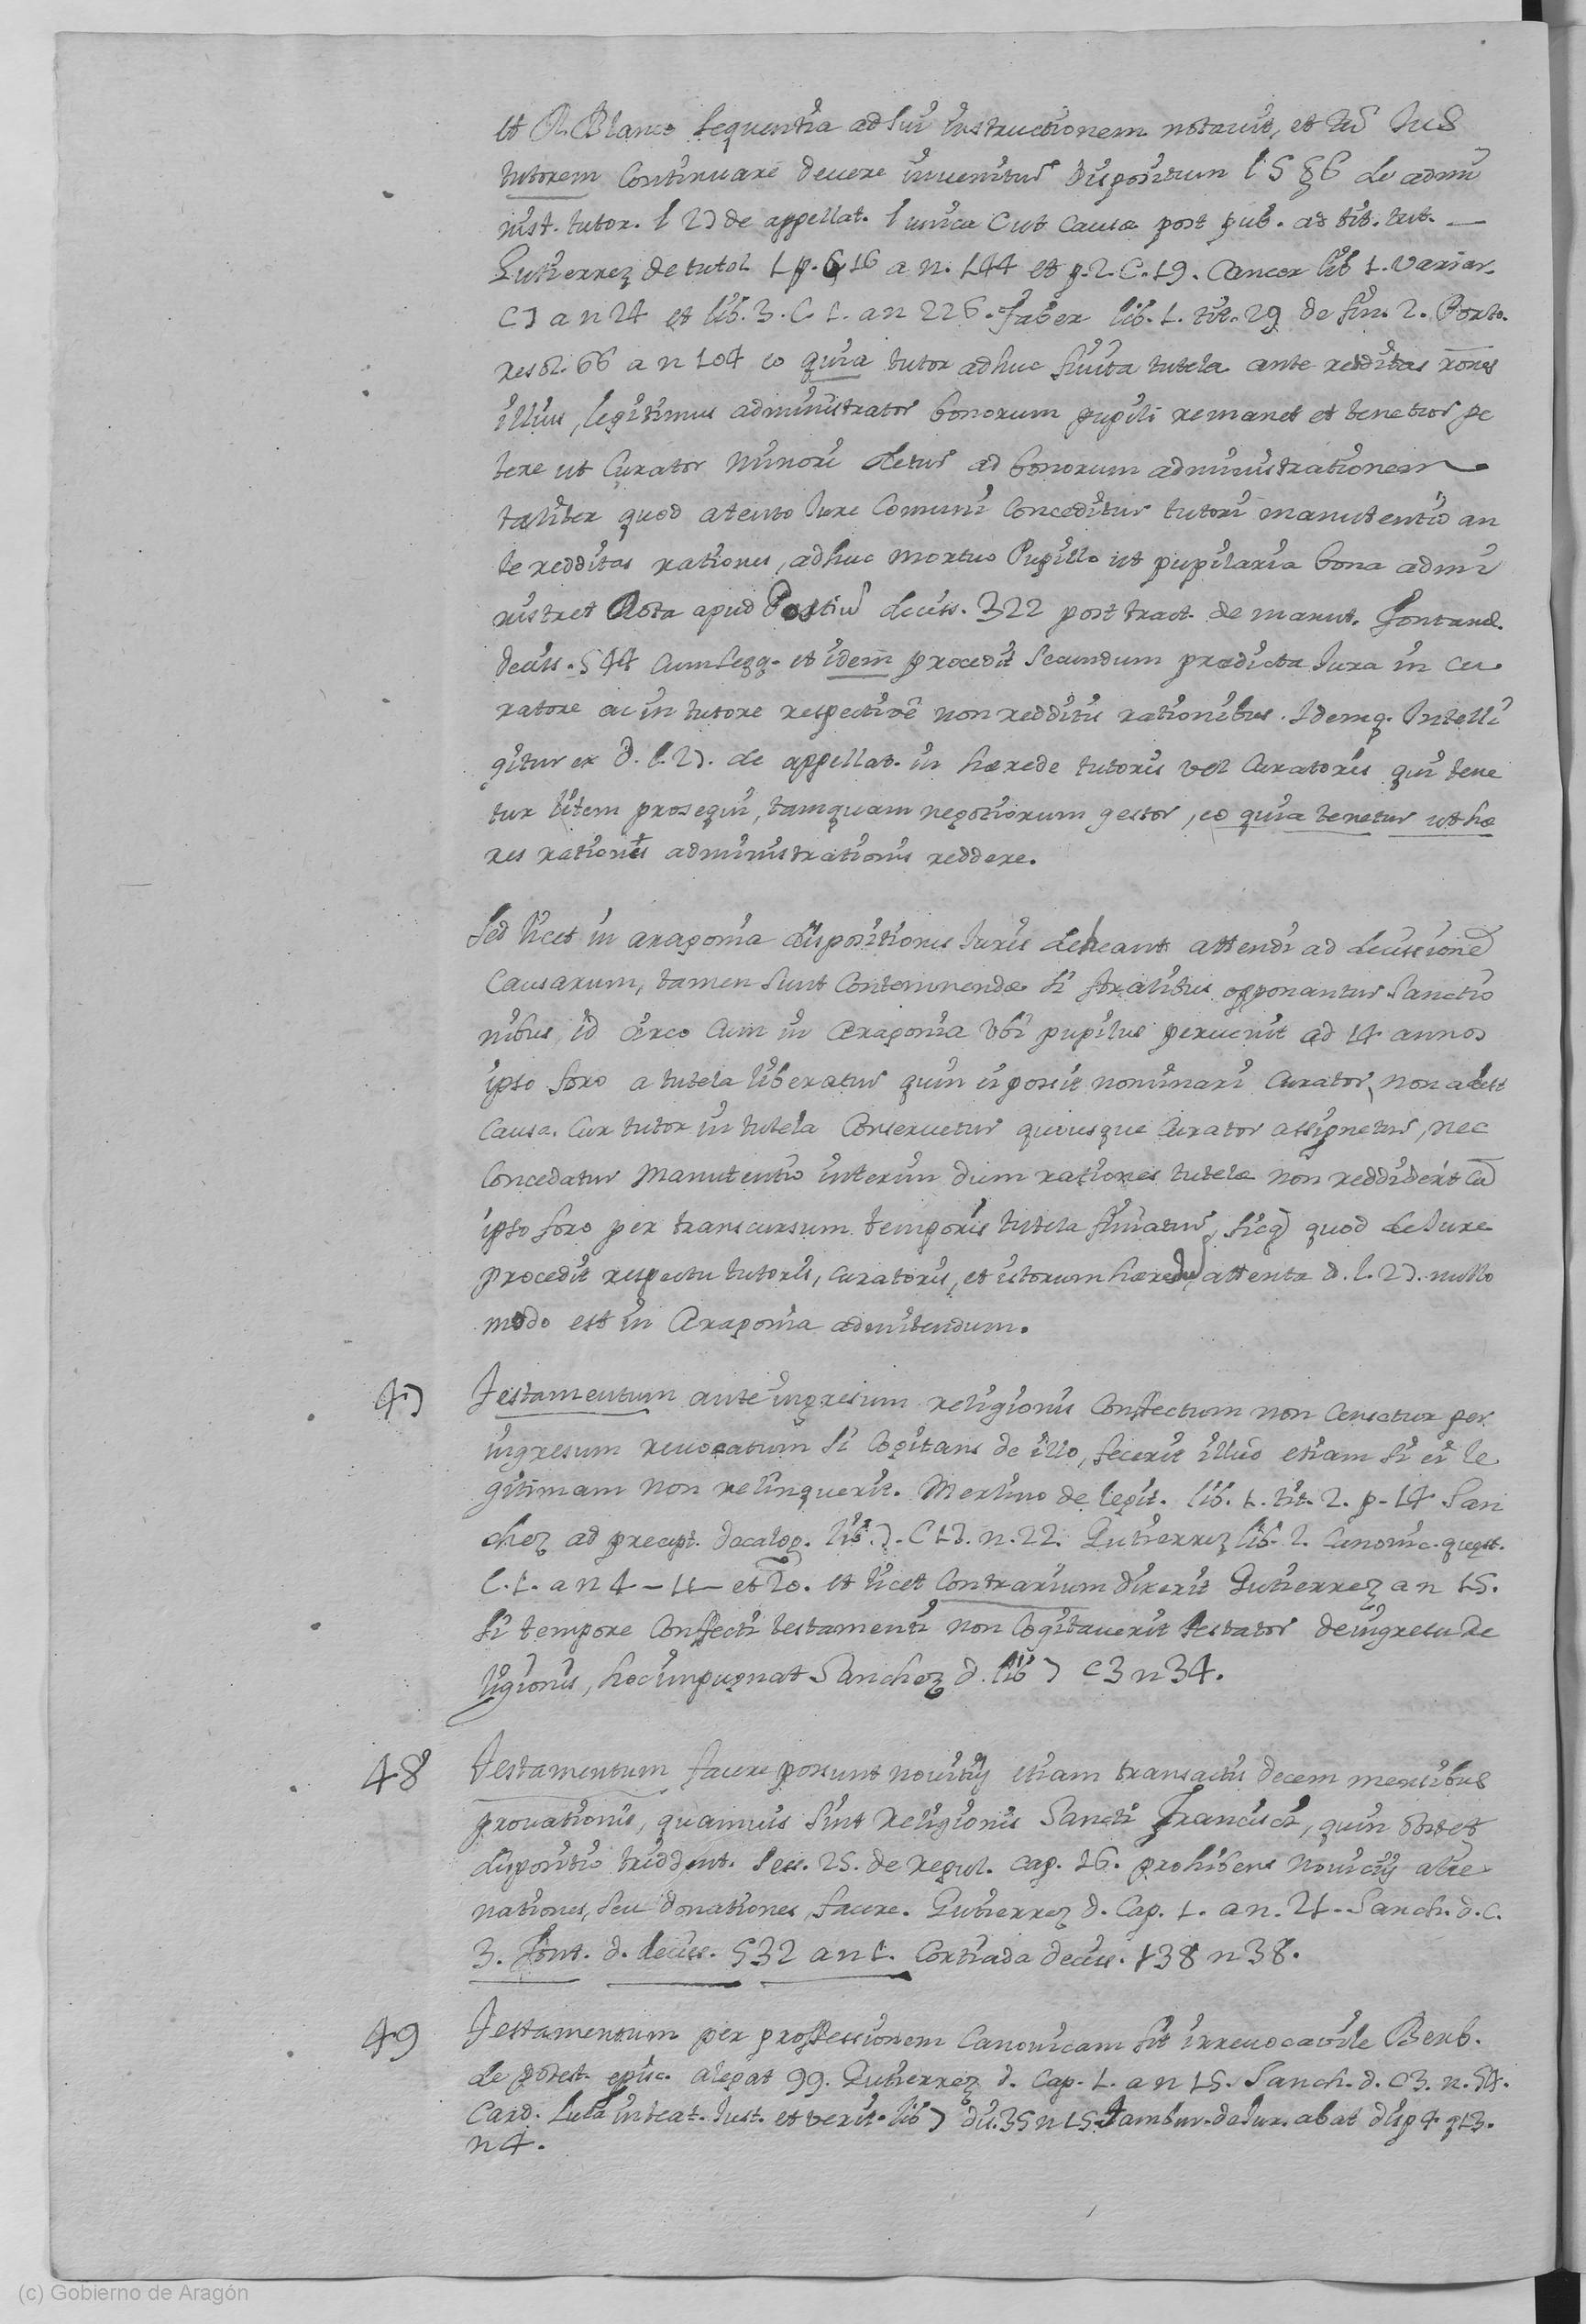 et R. Blanco sequentia ad sui instructionem notavit, et tũ Jus
tutorem Continuare devere invenitur dispositum l 5 § 6 de admi
nist. tutor. l 27 de appellat. l unica C ut causæ post pub. ad tit. tut. —
Gutierrez de tutel 1 p. C 16 a n. 144 et p. 2. C. 19. Cancer lib 1. variar.
C 7 a n 24 et lib. 3. C. 1. a n 226. Faber lib. 1. tit. 29 de fin. 2. Porto.
resol. 66 a n 104 eo quia tutor adhuc finita tutela ante redditas rões
illius, legitimus administrator bonorum pupili remanet et tenetur pe
tere ut Curator minori detur ad bonorum administrationem
taliter quod atento Jure Comuni Conceditur tutori manutentio an
te redditas rationes, adhuc mortuo Pupillo ut pupilaria bona admi
nistret Rota apud Postiũ deciss. 322 post tract. de manut. Fontanel.
deciss. 544 cum seqq. et idem procedit secundum prædicta Jura in cu
ratore ac in tutore respectivè non redditis rationibus. Idemq. Intelli
gitur ex d. l. 27. de appellat. in hærede tutoris vel Curatoris qui tene
tur litem prosequi, tamquam negotiorum gestor, eo quia tenetur ut hæ
res rationes administrationis reddere.
Sed licet in aragonia dispositiones Juris debeant attendi ad decissionẽ
Causarum, tamen sunt Contemnendæ si foralibus opponantur sanctio
nibus, id circo Cum in Aragonia ubi pupilus pervenit ad 14 annos
ipso foro a tutela liberatur quin ei possit nominari Curator, non adest
causa. Cur tutor in tutela Conservetur quousque Curator assignetur, nec
Concedatur Manutentio interim dum rationes tutelæ non reddiderit Cũ
ipso foro per transcursum temporis tutela finiatur, sicq quod de Jure
procedit respectu tutoris, curatoris, et istorum hæredũ attenta d. l. 27. nullo
modo est in Aragonia admitendum.
47 Testamentum ante ingresum religionis Confectum non Censetur per
ingresum revocatum si Cogitans de illo, fecerit illud etiam si ei le
gitimam non relinquerit. Merlino de legit. lib. 1. tit. 2. p. 14 San
chez ad precept. decalog. lib. 7. C 13. n. 22. Gutierrez lib. 2. Canonic. quæst.
C. 1. a n 4 – 11 – et 20. et licet contrarium dixerit Gutierrez a n 15.
si tempore Confecti testamenti non Cogitaverit testator de ingresu re
ligionis, hoc impugnat Sanchez d. lib 7 c 3 n 34.
48 Testamentum facere possunt novitij etiam transactis decem mensibus
provationis, quamvis sint Religionis Sancti Francisci, quin obstet
dispositio trident. sess. 25. de regul. cap. 16. prohibens novicijs alie
nationes, seu donationes, facere. Gutierrez d. Cap. 1. a n. 21. Sanch. d. c.
3. Font. d. decis. 532 a n 1. Cortiada decis. 138 n 38.
49 Testamentum per proffessionem Canonicam fit irrevocavile Barb.
de potest. episc. alegat 99. Gutierrez d. Cap. 1. a n 15. Sanch. d. C 3. n. 54.
Card. Luca in teat. Just. et verit. lib 7 dis. 35 n 15. Tambur. de Jur. abat disp 4 q 13.
n 4.
(c) Gobierno de Aragón